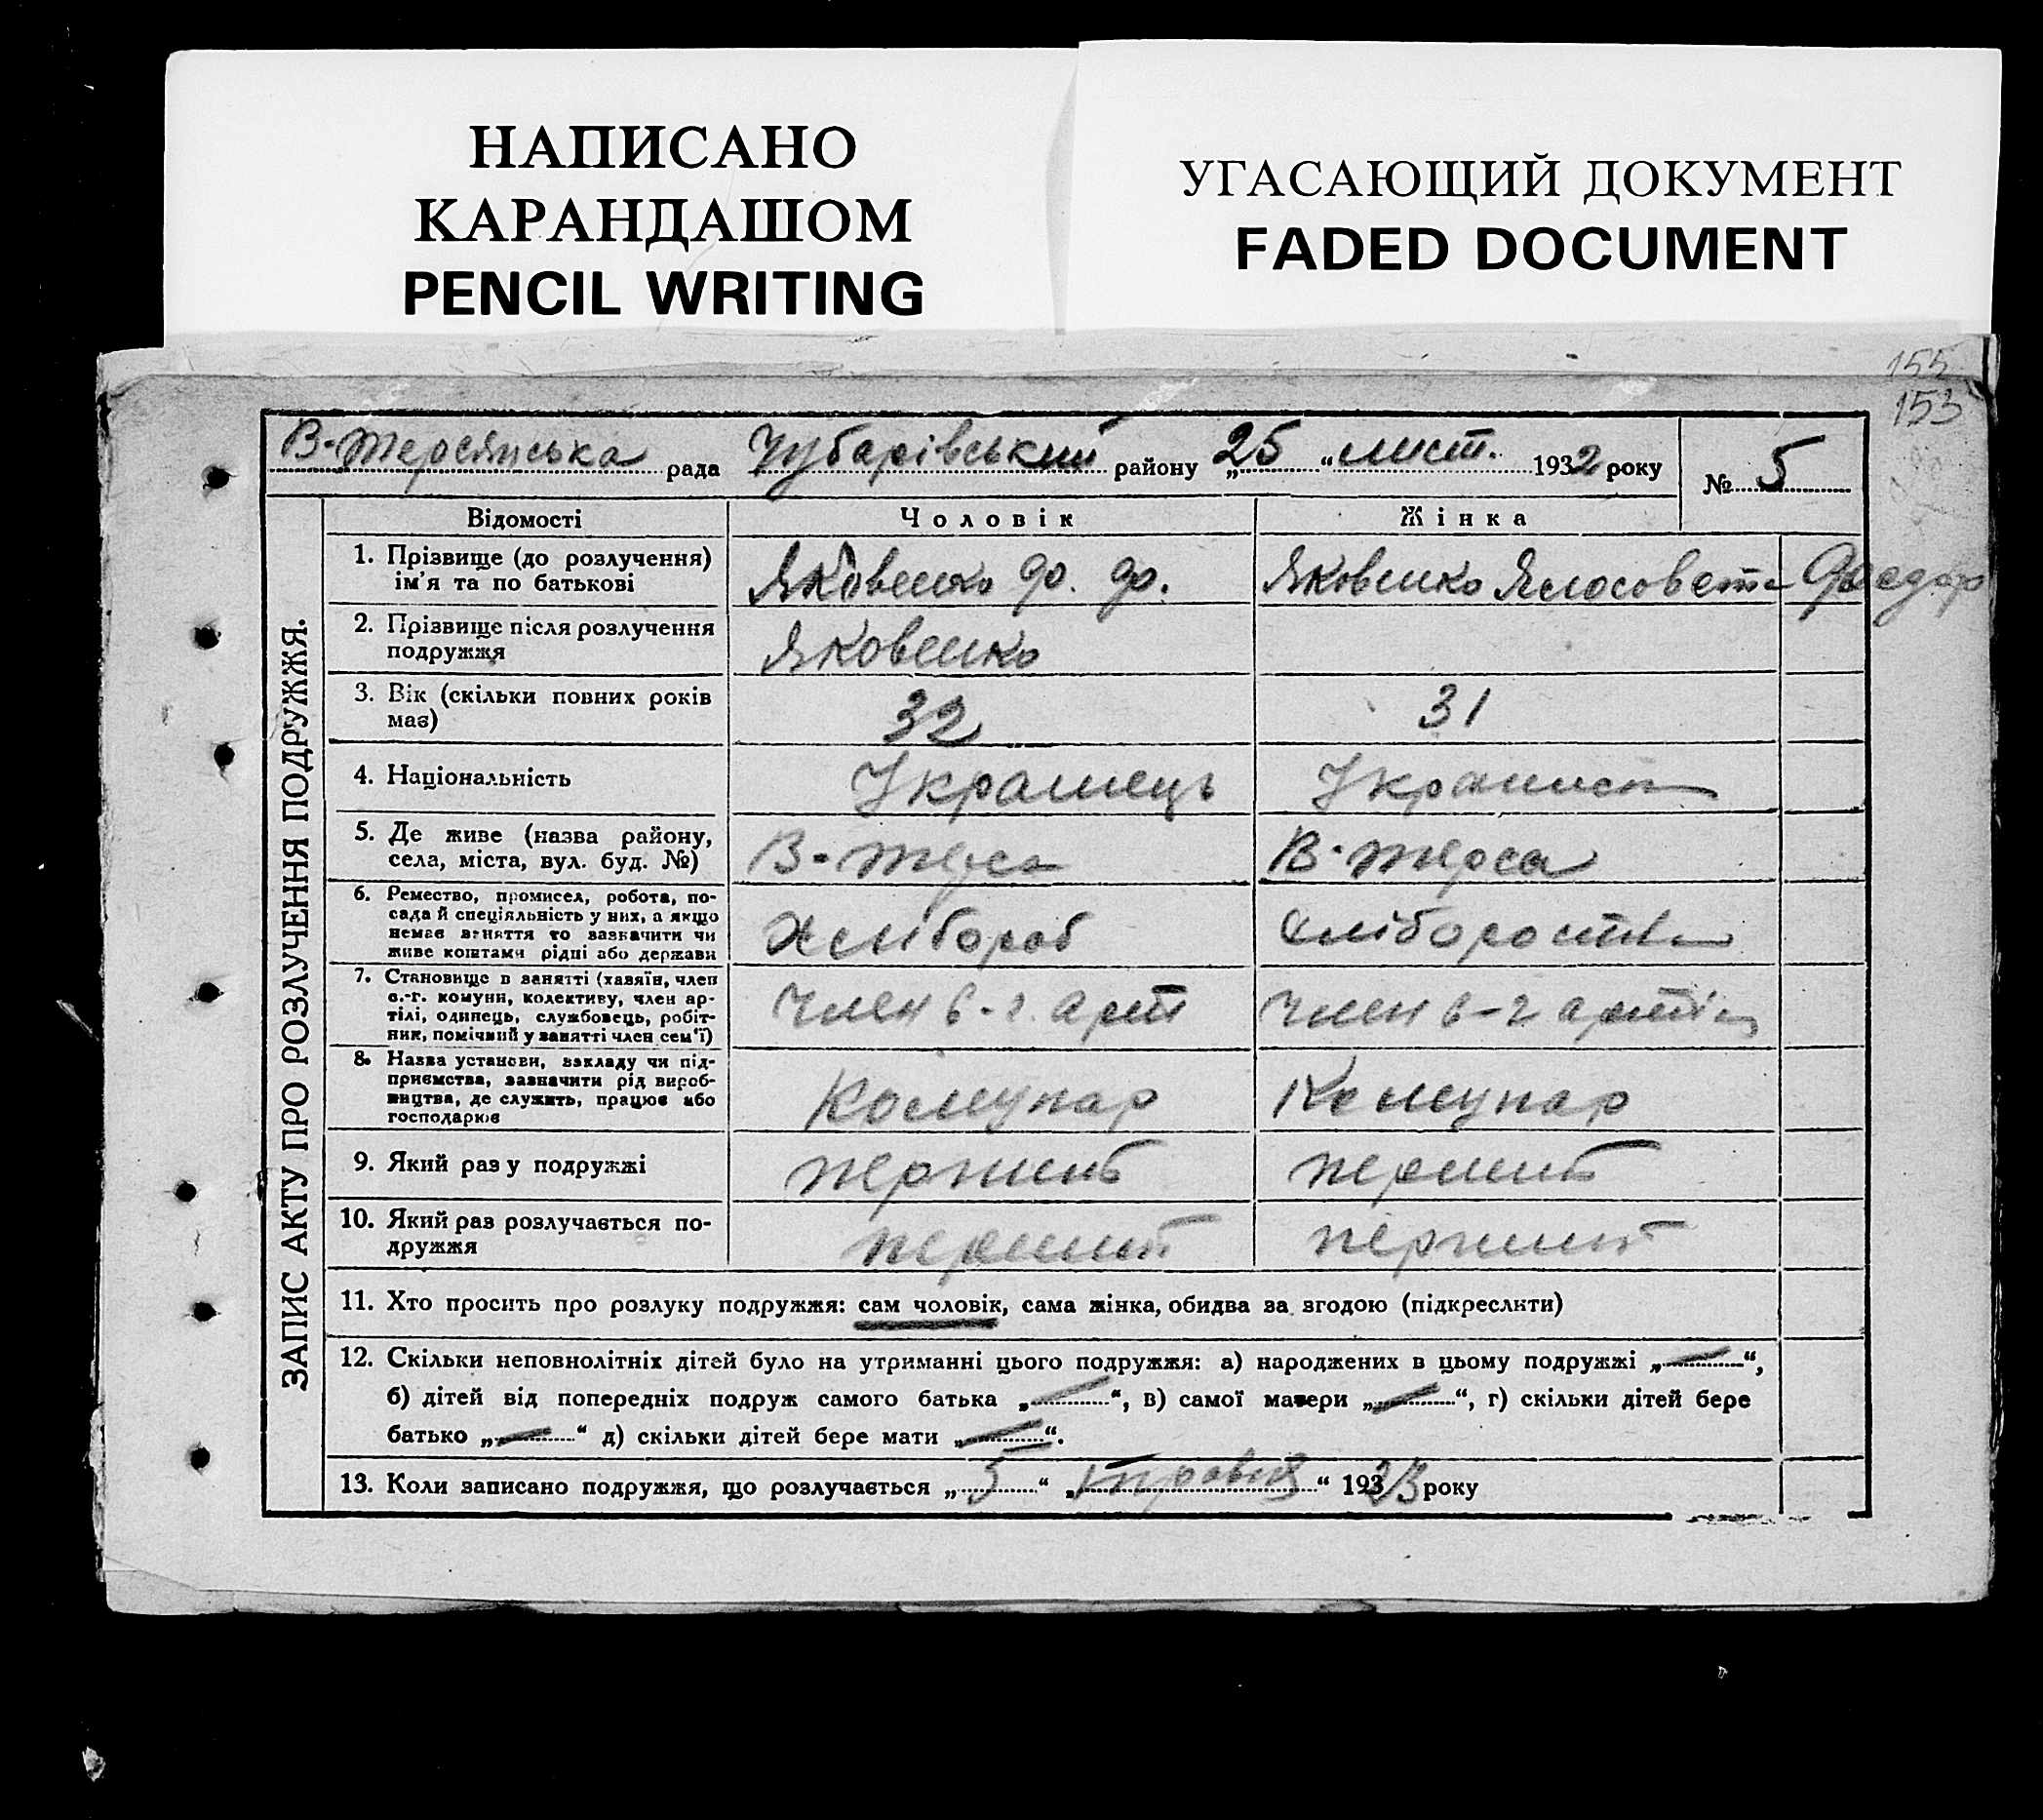 НАПИСАНО
КАРАНДАШОМ
PENCIL WRITING
УГАСАЮЩИЙ ДОКУМЕНТ
FADED DOCUMENT
155
153
В-Терсянська рада Чубарівський району „25“ лист. 1932 року
№ 5
ЗАПИС АКТУ ПРО РОЗЛУЧЕННЯ ПОДРУЖЖЯ.
Відомості Чоловік Жінка
1. Прізвище (до розлучення)
ім'я та по батькові
Яковенко Ф. Ф. Яковенко Ялосовета Федор
2. Прізвище після розлучення
подружжя
Яковенко
3. Вік (скільки повних років
має)
32 31
4. Національність
Украінець Украинка
5. Де живе (назва району,
села, міста, вул. буд. №)
В-Терса В-Терса
6. Ремество, промисел, робота, по-
сада й спеціяльність у них, а якщо
немає заняття то зазначити чи
живе коштами рідні або держави
Хлібороб
7. Становище в занятті (хазяїн, член
с.-г. комуни, колективу, член ар-
тілі, одинець, службовець, робіт-
ник, помічний у занятті член сем'ї)
Член с-г. арт Член с-г артіл
8. Назва установи, закладу чи під-
приємства, зазначити рід вироб-
ництва, де служить, працює або
господарює
Комунар Комунар
9. Який раз у подружжі
перший перший
10. Який раз розлучається по-
дружжя
перший перший
11. Хто просить про розлуку подружжя: сам чоловік, сама жінка, обидва за згодою (підкреслити)
12. Скільки неповнолітніх дітей було на утриманні цього подружжя: а) народжених в цьому подружжі „—“,
б) дітей від попередніх подруж самого батька „—“, в) самої матери „—“, г) скільки дітей бере
батько „—“ д) скільки дітей бере мати „—“.
13. Коли записано подружжя, що розлучається „5“ „травня“ 1923 року